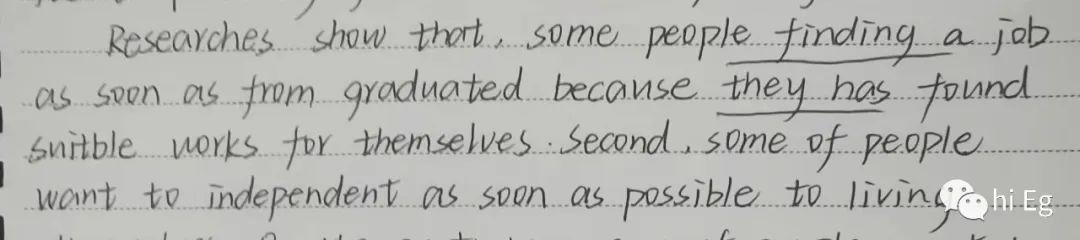 Researches show that, some people finding a job
as soon as from graduated because they has found
suitble works for themselves. Second, some of people
want to independent as soon as possible to living
hi Eg